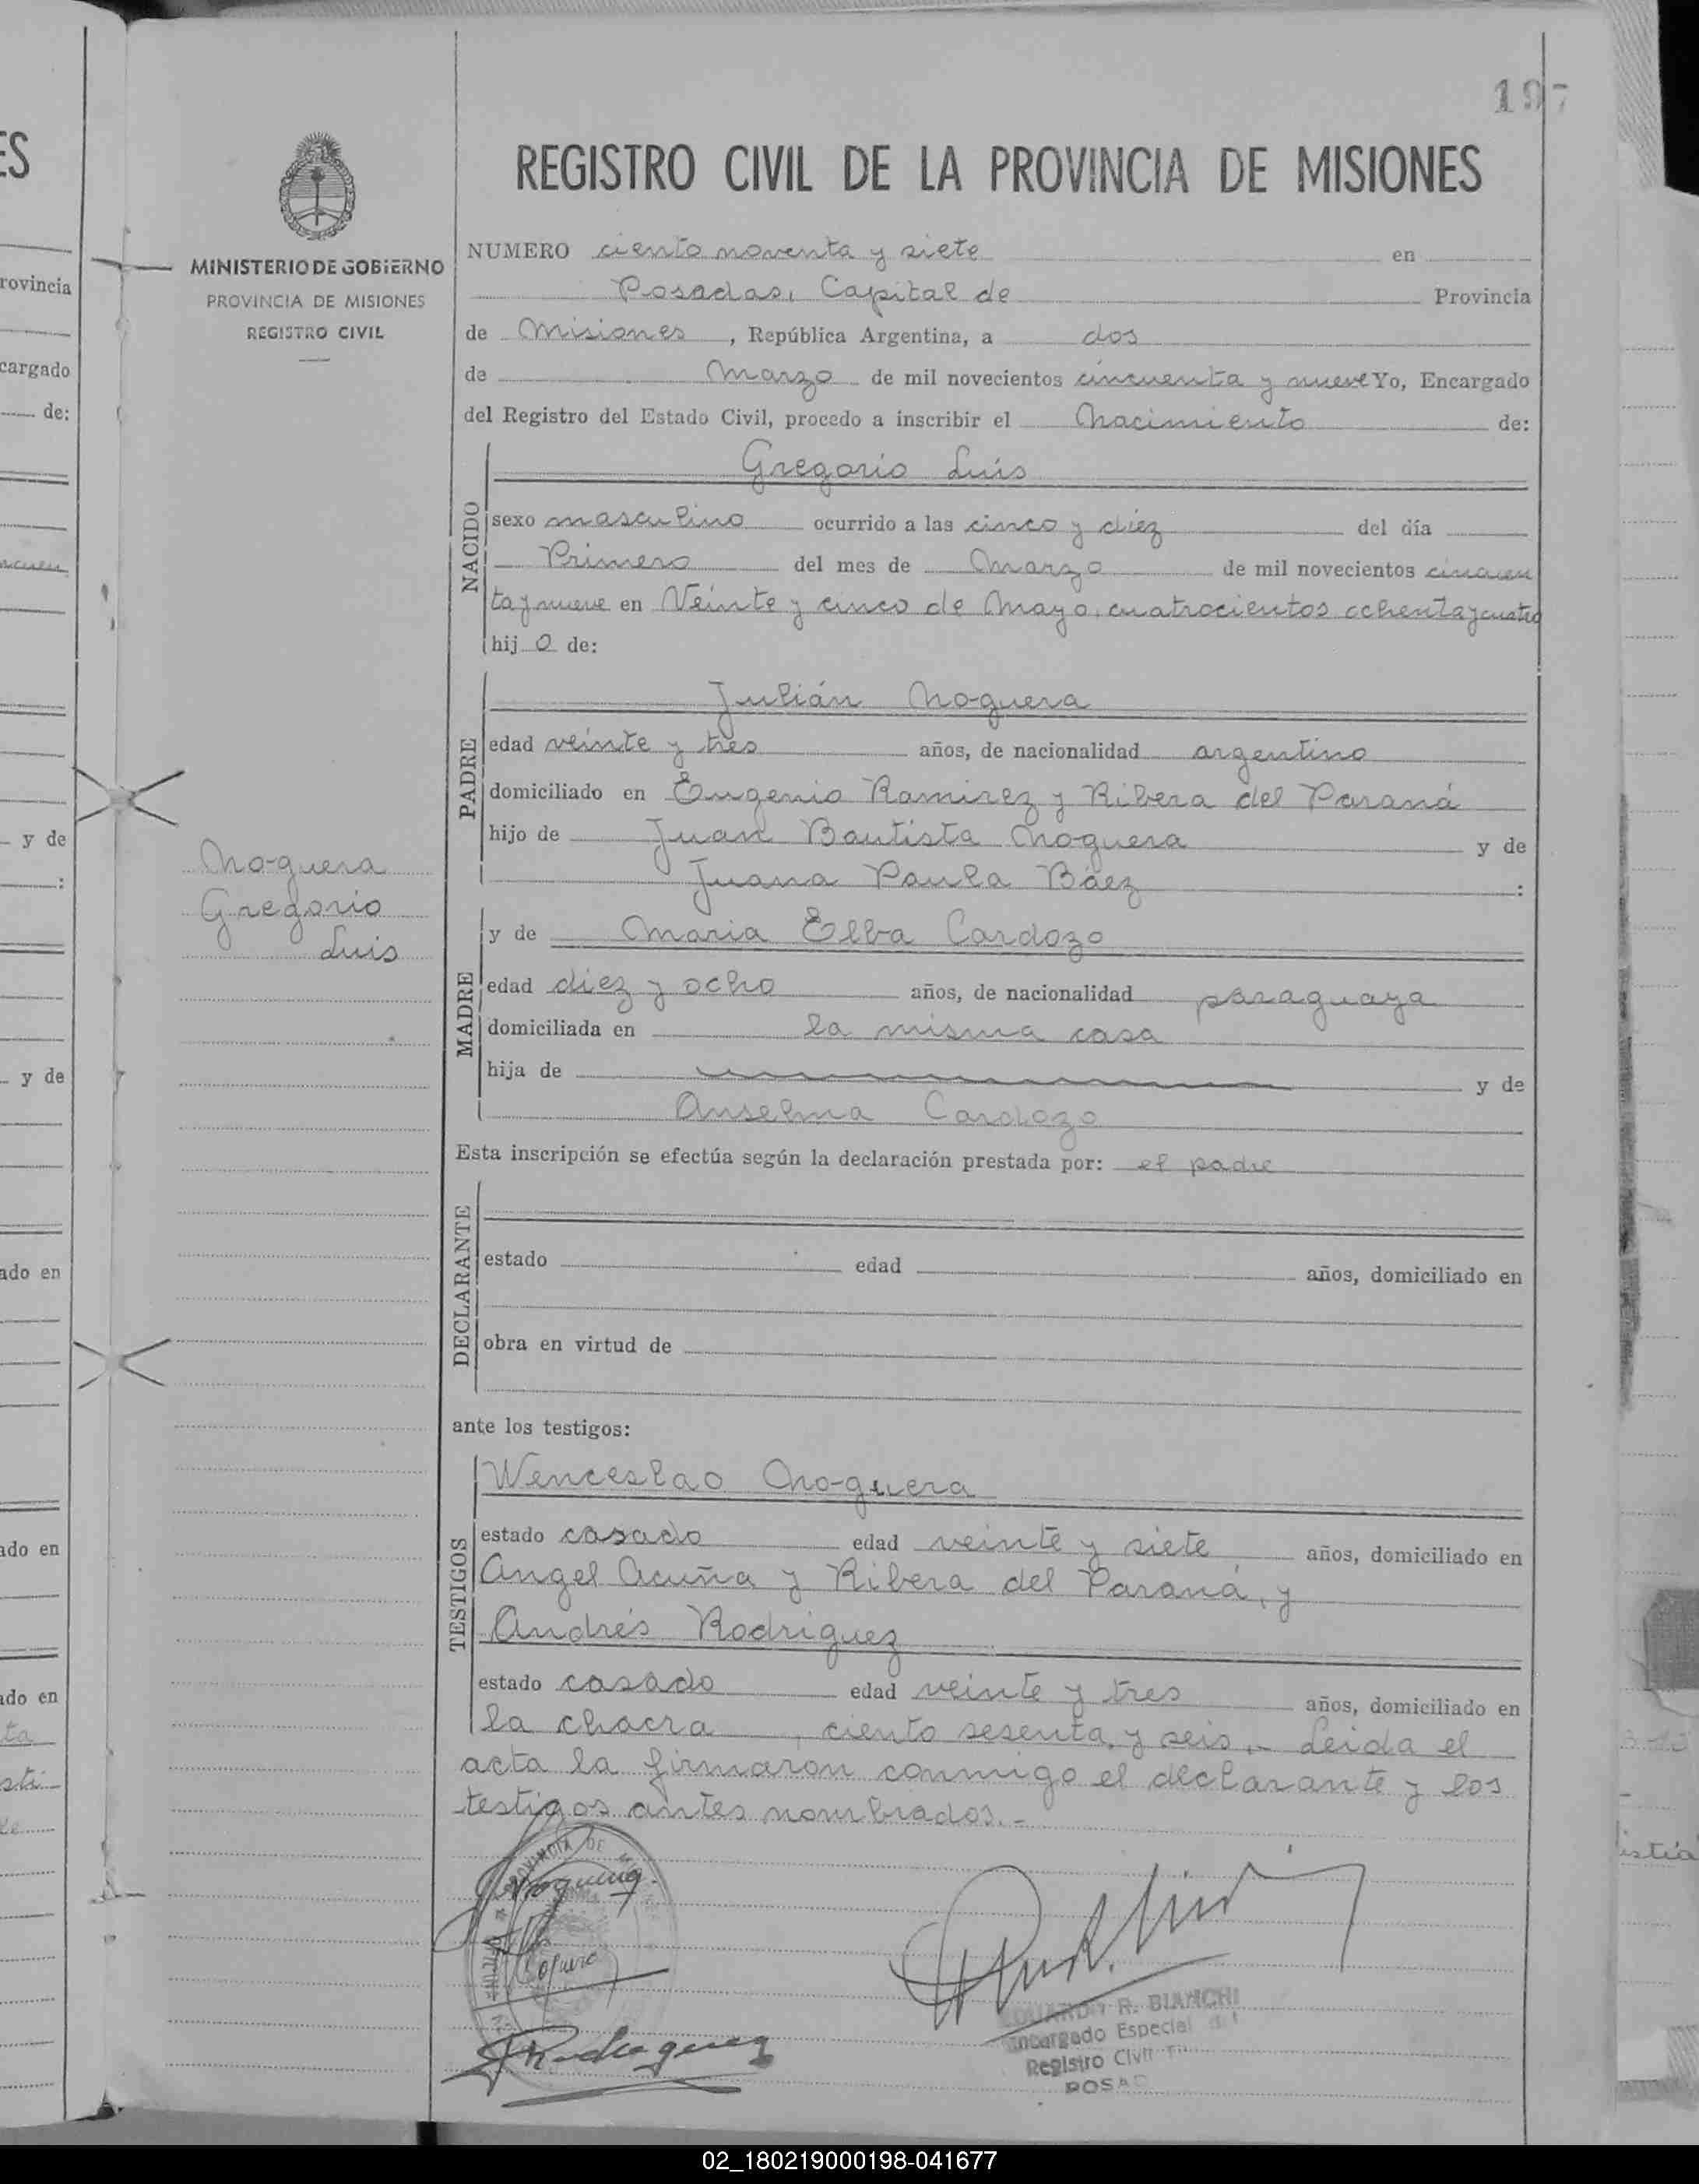 197
REGISTRO CIVIL DE LA PROVINCIA DE MISIONES
MINISTERIO DE GOBIERNO
PROVINCIA DE MISIONES
REGISTRO CIVIL
NUMERO ciento noventa y siete en
Posadas, Capital de Provincia
de Misiones, República Argentina, a dos
de Marzo de mil novecientos cincuenta y nueve Yo, Encargado
del Registro del Estado Civil, procedo a inscribir el Nacimiento de:
NACIDO
Gregorio Luis
sexo masculino ocurrido a las cinco y diez del día
Primero del mes de Marzo de mil novecientos cincuen
ta y nueve en Veinte y cinco de Mayo, cuatrocientos ochenta y cuatro
hijo de:
PADRE
Julián Noguera
edad veinte y tres años, de nacionalidad argentino
domiciliado en Eugenio Ramirez y Ribera del Paraná
hijo de Juan Bautista Noguera y de
Juana Paula Báez :
Noguera
Gregorio
Luis
MADRE
y de Maria Elba Cardozo
edad diez y ocho años, de nacionalidad paraguaya
domiciliada en la misma casa
hija de y de
Anselma Cardozo
Esta inscripción se efectúa según la declaración prestada por: el padre
DECLARANTE
estado edad años, domiciliado en
obra en virtud de
ante los testigos:
TESTIGOS
Wenceslao Noguera
estado casado edad veinte y siete años, domiciliado en
Angel Acuña y Ribera del Paraná, y
Andrés Rodriguez
estado casado edad veinte y tres años, domiciliado en
la chacra, ciento sesenta y seis.- Leida el
acta la firmaron conmigo el declarante y los
testigos antes nombrados.-
PROVINCIA DE
EDUARDO R. BIANCHI
Encargado Especial del
Registro Civil
POSAD
02_180219000198-041677